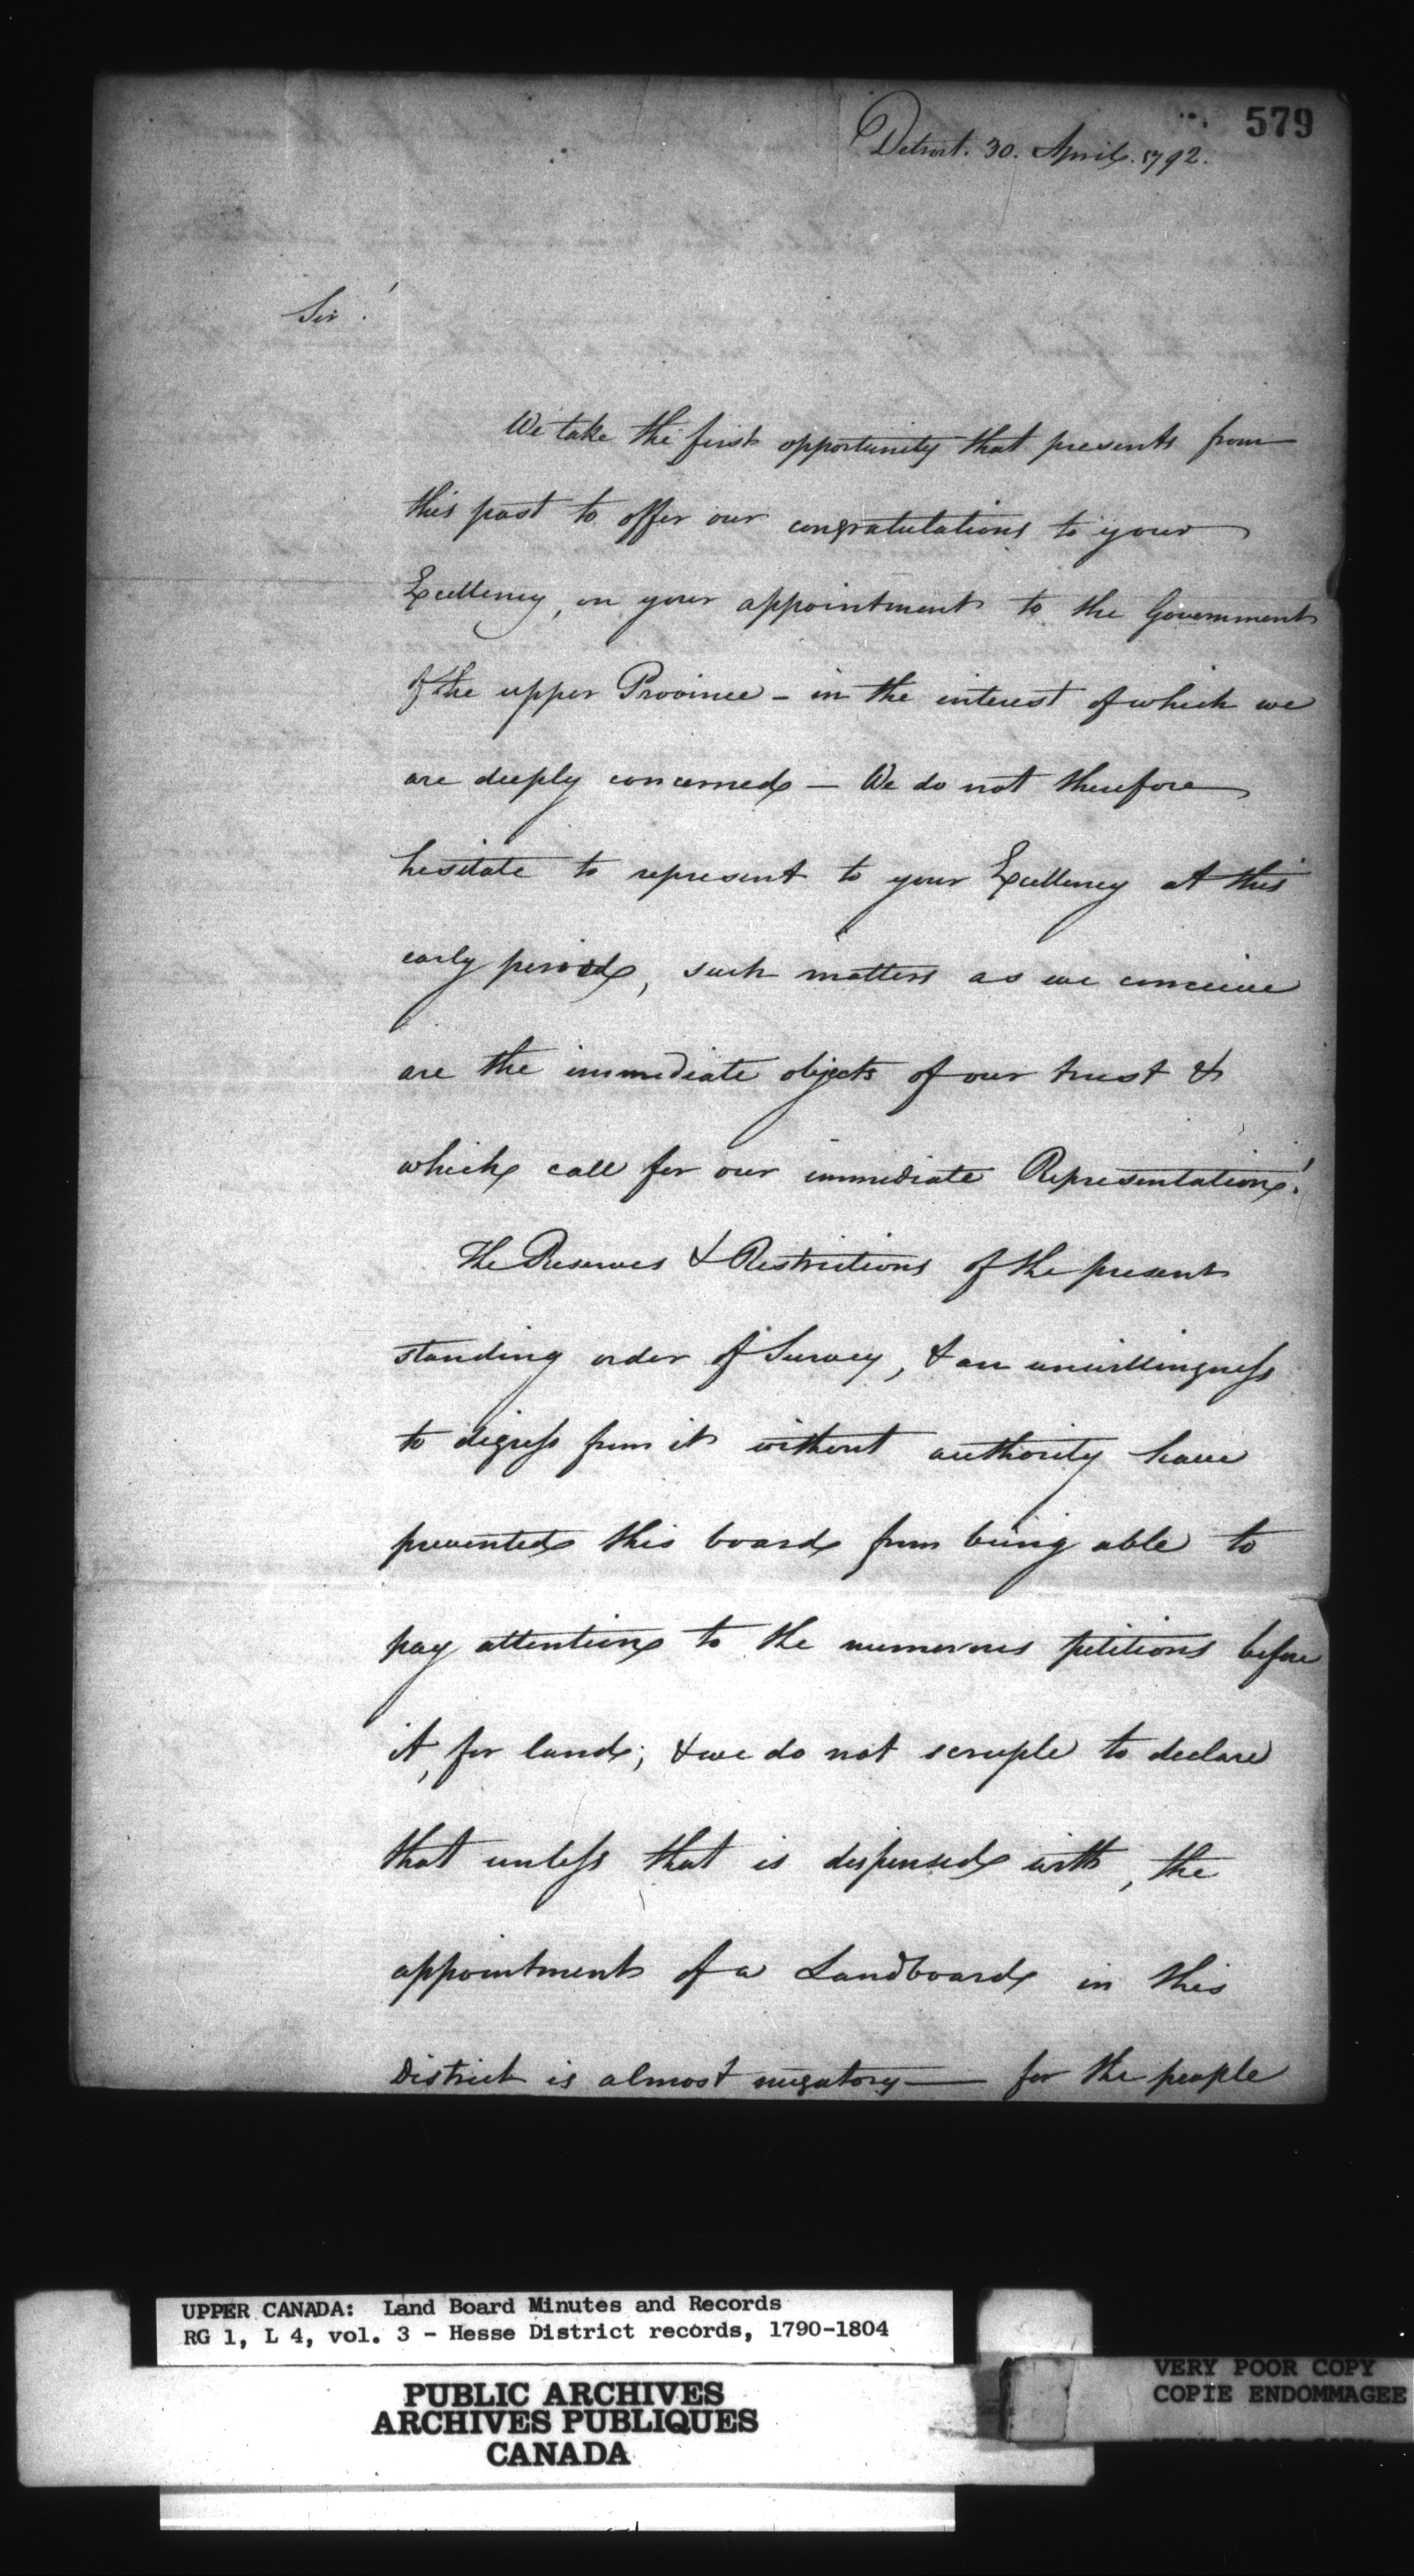 579
Detroit. 30. April. 1792.
Sir!
We take the first opportunity that presents from
this post to offer our congratulations to your
Excellency, on your appointment to the Government
of the upper Province - in the interest of which we
are deeply concerned — We do not therefore
hesitate to represent to your Excellency at this
early period, such matters as we conceive
are the immediate objects of our trust &
which call for our immediate Representation!
The Reserves & Restrictions of the present
standing order of Survey, & an unwillingness
to digress from it without authority have
prevented this board from being able to
pay attention to the numerous petitions before
it, for land; & we do not scruple to declare
that unless that is dispensed with, the
appointment of a Landboard in this
District is almost nugatory — for the people
UPPER CANADA: Land Board Minutes and Records
RG 1, L 4, vol. 3 - Hesse District records, 1790-1804
PUBLIC ARCHIVES
ARCHIVES PUBLIQUES
CANADA
VERY POOR COPY
COPIE ENDOMMAGEE